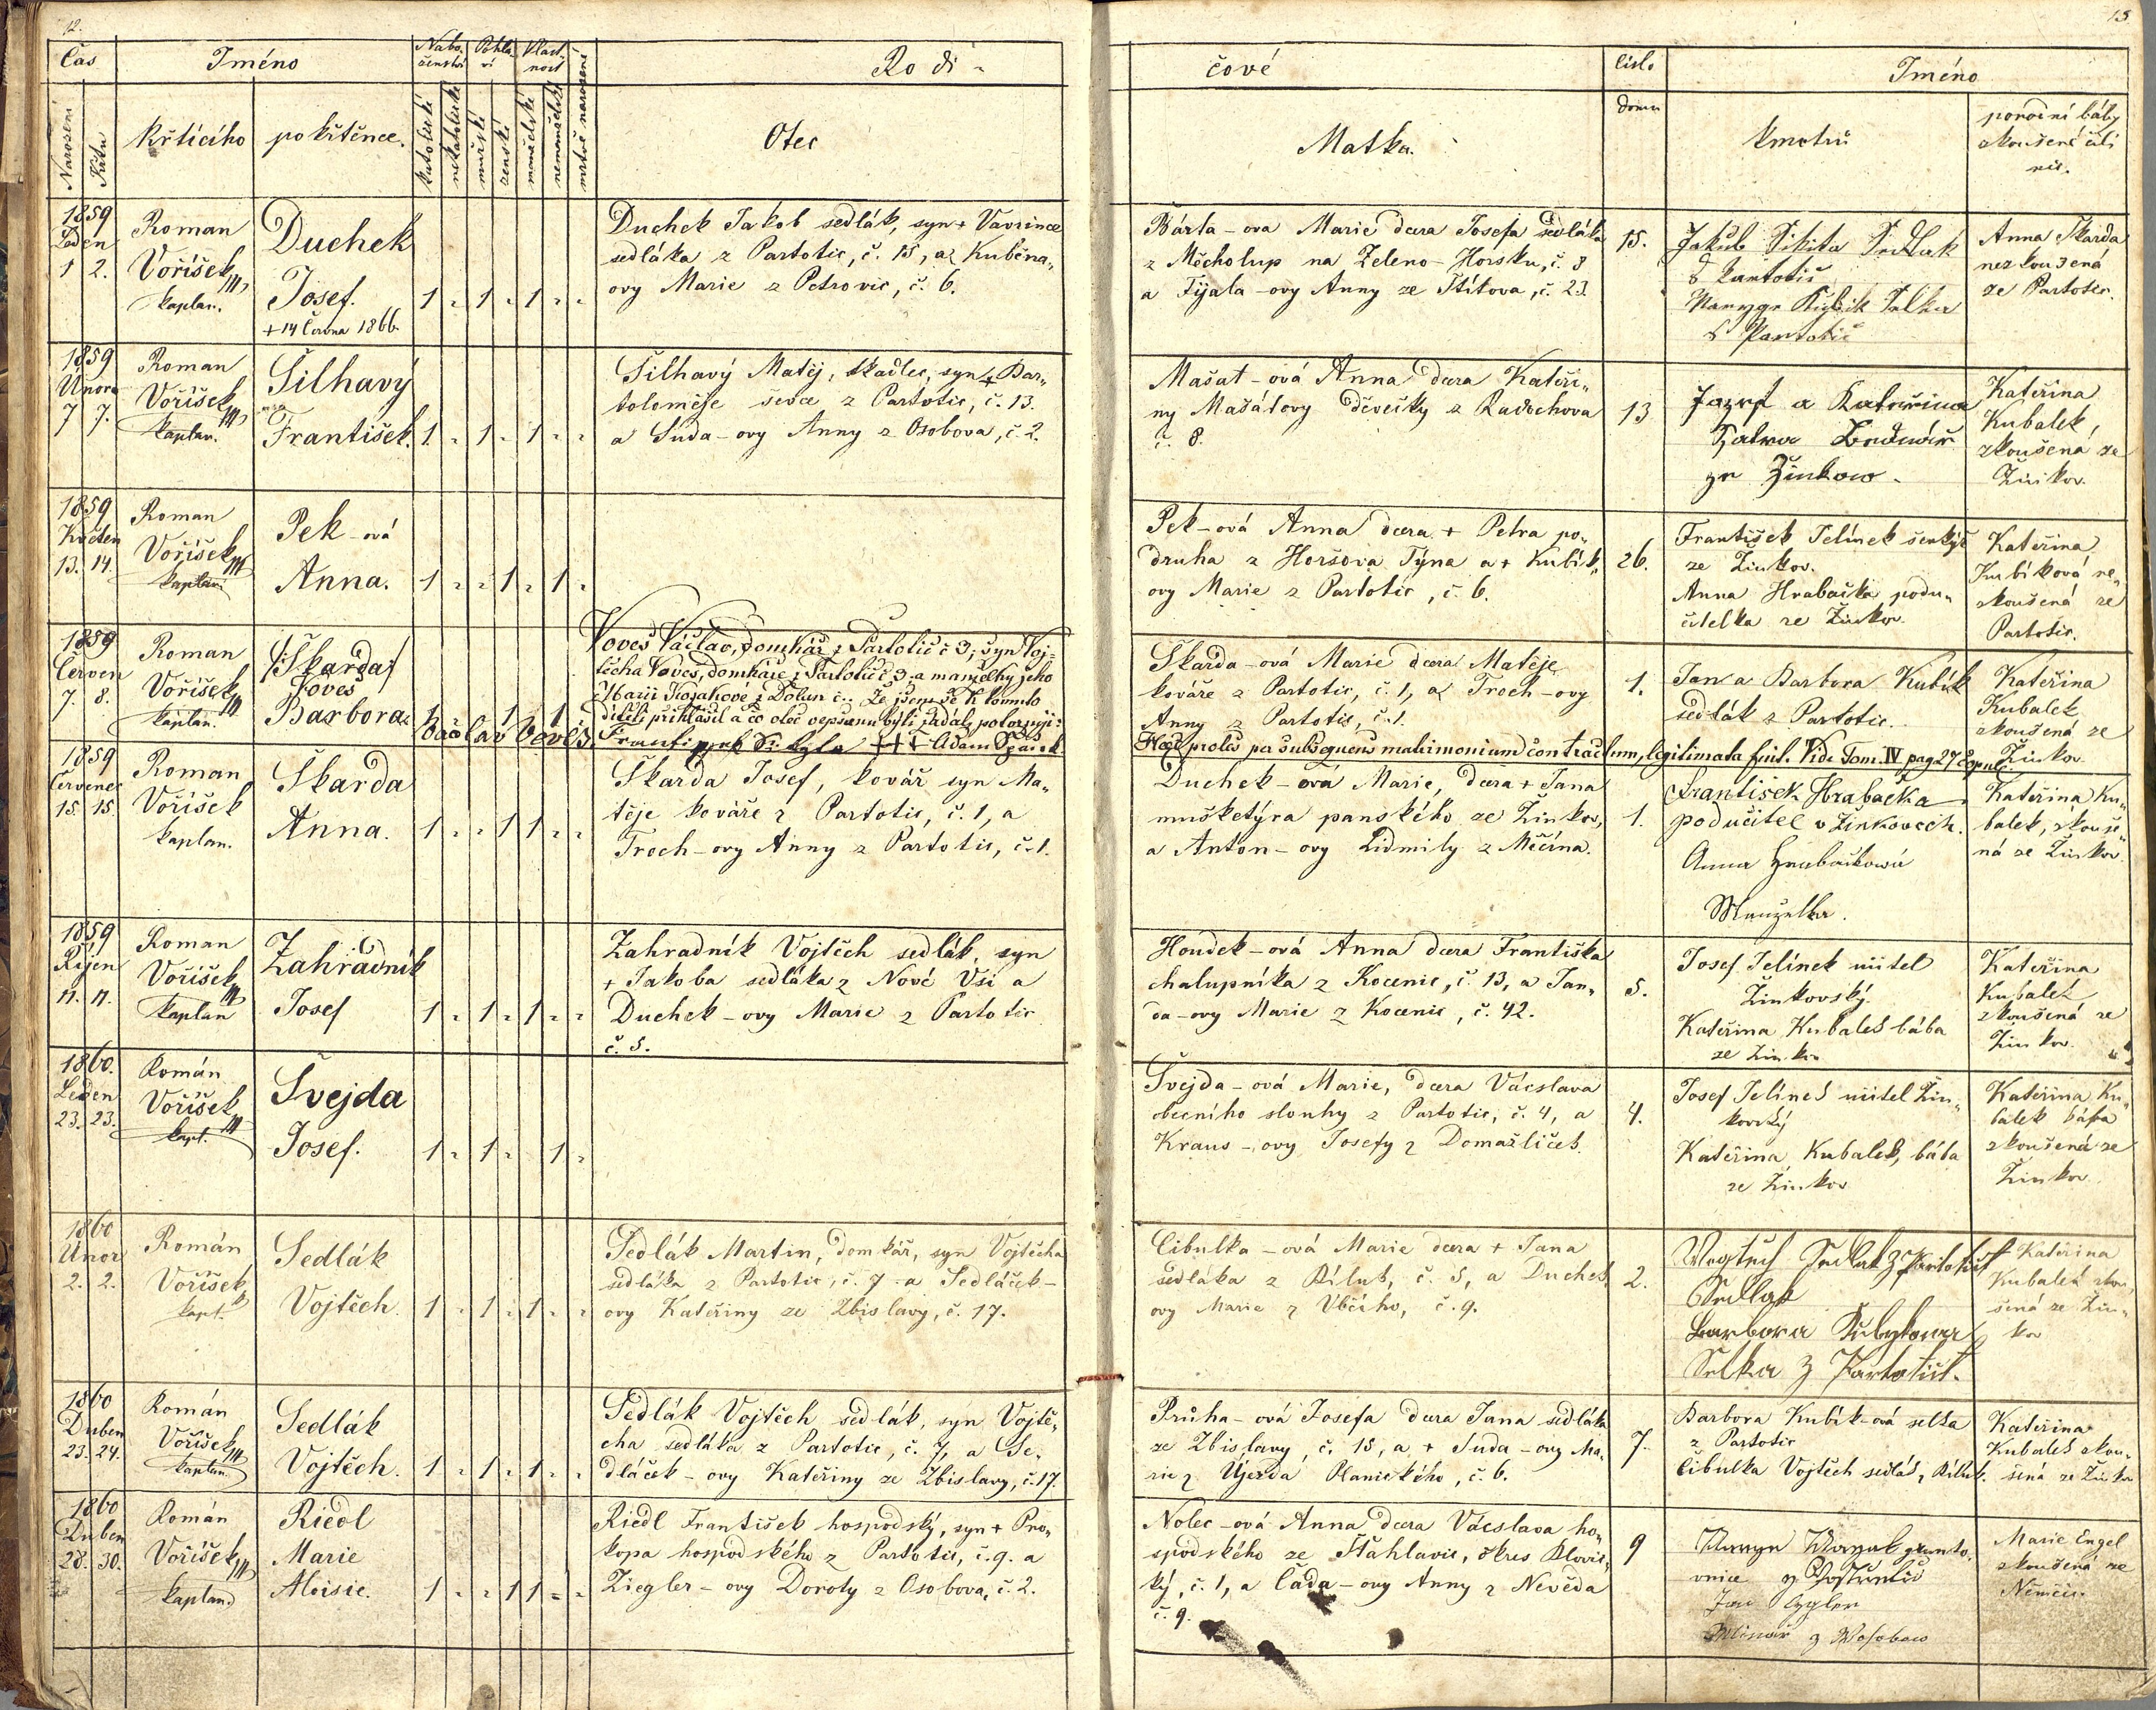 12.
13
Čas
Jméno
Nábo-
ženství
Pohla-
ví
Vlast-
nost
Rodi-
čové
Číslo
domu
Jméno
Narození
Křtu
křtícího
pokřtěnce.
katolické
nekatolické
mužské
ženské
manželské
nemanželské
mrtvě narozené
Otec
Matka.
kmotrů
porodní báby
zkoušené čili
nic.
1859
Leden
1 2.
Roman
Voříšek
kaplan.
Duchek
Josef.
+ 14 Června 1866.
1 " 1 " 1 " "
Duchek Jakob sedlák, syn + Vavřince
sedláka z Partotic, č. 15, a Kuběna-
ovy Marie z Petrovic, č. 6.
Bárta-ova Marie dcera Josefa sedláka
z Měcholup na Zeleno-Horsku, č. 8
a Fijala-ovy Anny ze Štítova, č. 23.
15.
Anna Škarda
nezkoušená
ze Partotic.
1859
Února
7 7.
Roman
Voříšek
kaplan.
Šilhavý
František.
1 " 1 " 1 " "
Šilhavý Matěj, tkadlec, syn + Bar-
toloměje ševce z Partotic, č. 13.
a Suda-ovy Anny z Osobova, č. 2.
Mašat-ová Anna dcera Kateři-
ny Mašátovy děvečky z Radochova
č. 8.
13
Jozef a Kateřina
ze Žinkow.
Kateřina
Kubalek,
zkoušená ze
Žinkov.
1859
Květen
13. 14.
Roman
Voříšek
kaplan
Pek-ová
Anna.
1 " " 1 " 1 "
Pek-ová Anna dcera + Petra po-
druha z Horšova Týna a + Kubík-
ovy Marie z Partotic, č. 6.
26.
František Jelínek šenkýř
ze Žinkov.
Anna Hrabačka podu-
čitelka ze Žinkov.
Kateřina
Kubíková ne-
zkoušená ze
Partotic.
1859
Červen
7. 8.
Roman
Voříšek
kaplan.
/:Škarda:/
Voves
Barbora
1 1 1
Voves Václav, domkář z Partotic č 3; syn Voj-
těcha Voves, domkáře z Partotic č 3, a manželky jeho
Marii Kozákové z Dolan č.. Že jsem se k tomuto
dítěti přihlásil a co otec vepsanu býti žádal, potvrzuji:
Václav Voves. František +++ Adam
Škarda-ová Marie dcera Matěje
kováře z Partotic, č. 1, a Troch-ovy
Anny z Partotic, č. 1.
Haec proles per subsequens matrimonium contractum, legitimata fuit. Vide Tom. IV pag 27 Copul.
1.
Jan a Barbora Kubík
sedlák z Partotic.
Kateřina
Kubalek
zkoušená ze
Žinkov
1859
Červenec
15. 15.
Roman
Voříšek
kaplan.
Škarda
Anna.
1 " " 1 1 " "
Škarda Josef, kovář syn Ma-
těje kováře z Partotic, č. 1, a
Troch-ovy Anny z Partotic, č. 1.
Duchek-ová Marie, dcera + Jana
mušketýra panského ze Žinkov,
a Anton-ovy Lidmily z Měčína.
1.
František Hrabačka
podučitel v Žinkovech.
Anna Hrabačkowá
Manželka.
Kateřina Ku-
balek, zkouše-
ná ze Žinkov.
1859
Říjen
11. 11.
Roman
Voříšek
kaplan
Zahradník
Josef
1 " 1 " 1 " "
Zahradník Vojtěch sedlák, syn
+ Jakoba sedláka z Nové Vsi a
Duchek-ovy Marie z Partotic
č. 5.
Houdek-ová Anna dcera Františka
chalupníka z Kocenic, č. 13, a Jan-
da-ovy Marie z Kocenic, č. 42.
5.
Josef Jelínek učitel
Žinkovský.
Kateřina Kubalek bába
ze Žinkov
Kateřina
Kubalek
zkoušená ze
Žinkov.
1860.
Leden
23. 23.
Román
Voříšek
kapl.
Švejda
Josef.
1 " 1 " 1 "
Švejda-ová Marie, dcera Vácslava
obecního slouhy z Partotic, č. 4, a
Kraus-ovy Josefy z Domažliček.
4.
Josef Jelínek učitel Žin-
kovský
Kateřina Kubalek, bába
ze Žinkov
Kateřina Ku-
balek bába
zkoušená ze
Žinkov.
1860
Únor
2. 2.
Román
Voříšek
kapl.
Sedlák
Vojtěch.
1 " 1 " 1 " "
Sedlák Martin, domkář, syn Vojtěcha
sedláka z Partotic, č. 7 a Sedláček-
ovy Kateřiny ze Zbislavy, č. 17.
Cibulka-ová Marie dcera + Jana
sedláka z Bíluk, č. 5, a Duchek
ovy Marie z Vbčího, č. 9.
2.
Sedlak
Barbora
Selka z Partotic.
Kateřina
Kubalek zkou-
šená ze Žin-
kov
1860
Duben
23. 24.
Román
Voříšek
kaplan.
Sedlák
Vojtěch.
1 " 1 " 1 " "
Sedlák Vojtěch sedlák, syn Vojtě-
cha sedláka z Partotic, č. 7, a Se-
dláček-ovy Kateřiny ze Zbislavy, č. 17.
Průha-ová Josefa dcera Jana sedláka
ze Zbislavy, č. 15, a + Suda-ovy Ma-
rie z Újezda Planického, č. 6.
7.
Barbora Kubík-ová selka
z Partotic
Cibulka Vojtěch sedlák z Bíluk.
Kateřina
Kubalek zkou-
šená ze Žinkov
1860
Duben
28. 30.
Román
Voříšek
kaplan
Riedl
Marie
Aloisie.
1 " " 1 1 " "
Riedl František hospodský, syn + Pro-
kopa hospodského z Partotic, č. 9. a
Ziegler-ovy Doroty z Osobova, č. 2.
Nolec-ová Anna dcera Vácslava ho-
spodského ze Šťáhlavic, okres Blovic-
ký, č. 1, a Čada-ovy Anny z Nevěda
č. 9.
9
Jan Cygler
Mlinář z Wosobow
Marie Engel
zkoušená ze
Němčic.